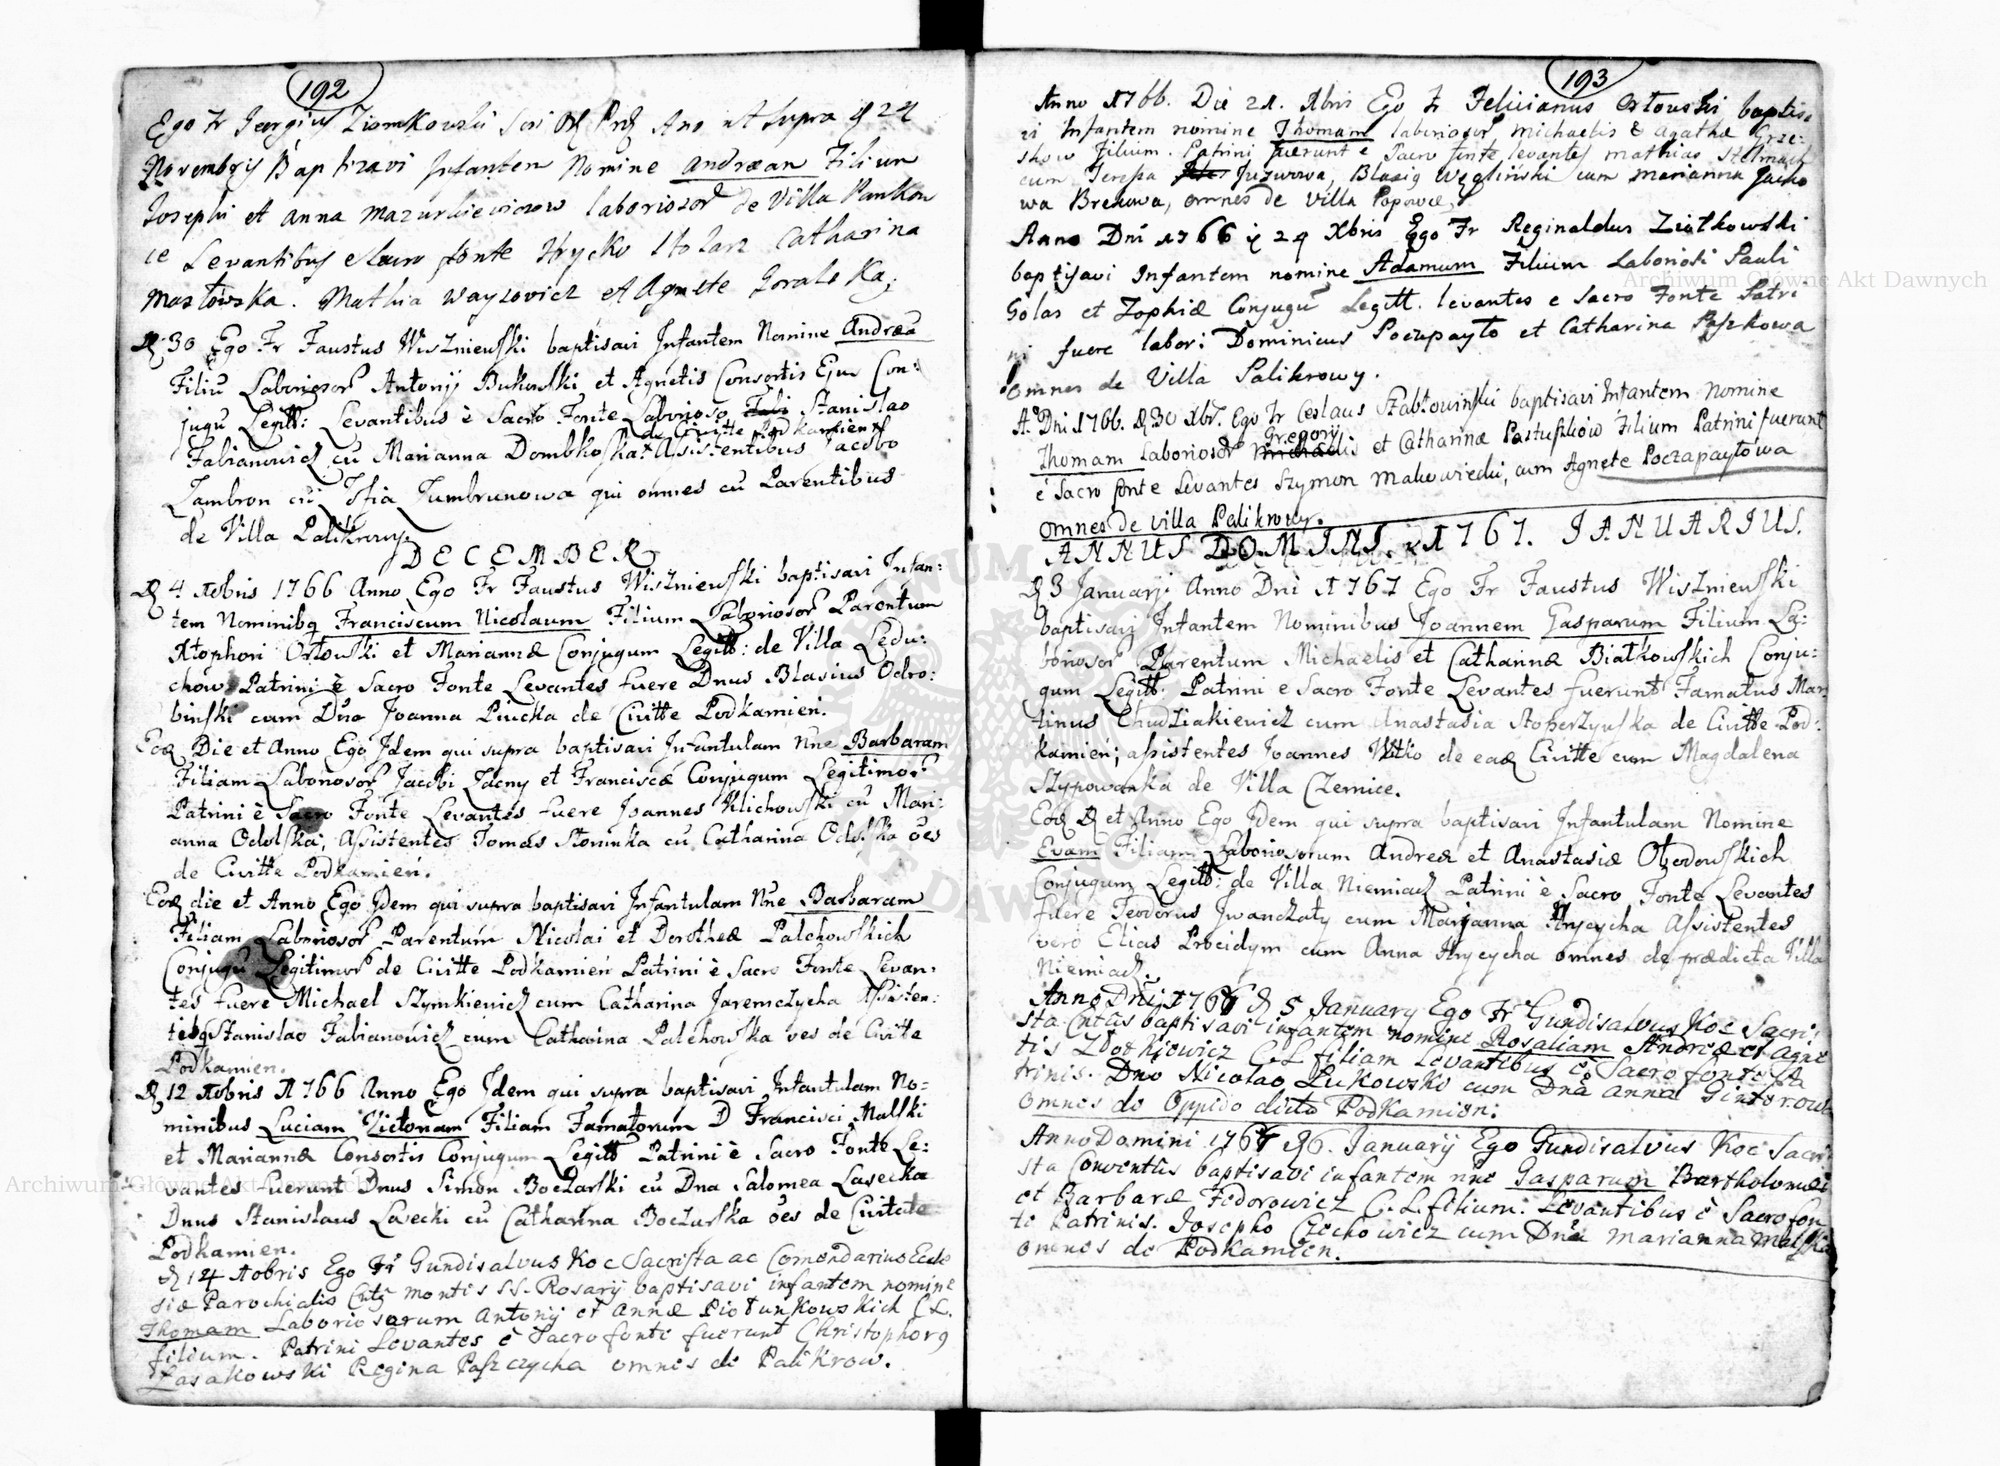 192
Ego Fr Georgius Ziomkowski Ano ut supra 24
Novembris Baptizavi Infantem Nomine Andræan Filium
Josephi et anna Mazurkiewiczow laboriosor de Villa Pankow
ce Levantibus e Sacro fonte Hrycko Stolarz Catharina
Masłowska. Mathia Wayzovicz et Agnete Goralska;
D 30 Ego Fr Faustus Wiszniewski baptisavi Infantem Nomine Andrea
Filiū Laboriosor Antonij Bukowski et Agnetis Consortis Ejus Con:
jugū Legitt: Levantibus è Sacro Fonte Laborioso Stanislao
de Civitte Podkamień
Fabianowicz cū Marianna Dombkoska Assistentibus Jacobo
Zambron cū Zofia Zumbrunowa qui omnes cū Parentibus
de Villa Palikrowy
DECEMBER
D 4 Xbris 1766 Anno Ego Fr Faustus Wiszniewski baptisavi Infan:
tem Nominibq Franciscum Nicolaum Filium Laboriosor Parentum
Xtophori Orłowski et Mariannæ Conjugum Legitt: de Villa Ledu:
chow Patrini è Sacro Fonte Levantes fuere Dnus Blasius Odro:
binski cum Dna Joanna Piucka de Civitte Podkamień.
Eod Die et Anno Ego Idem qui supra baptisavi Infantulam Nne Barbaram
Filiam Laboriosor Jacobi Zacny et Franciscæ Conjugum Legitimor
Patrini è Sacro Fonte Levantes fuere Joannes Klichowski cū Mari:
anna Odolska; Assistentes Tomas Słoninka cū Catharina Odolska oes
de Civitte Podkamień.
Eod die et Anno Ego Idem qui supra baptisavi Infantulam Nne Barbaram
Filiam Laboriosor Parentum Nicolai et Dorotheæ Palchowskich
Conjugū Legitimor de Civitte Podkamień Patrini è Sacro Fonte Levan:
tes fuere Michael Szymkiewicz cum Catharina Jaremczycha Assisten:
tebq Stanislao Fabianowicz cum Catharina Palchowska oes de Civitte
Podkamien.
D 12 Xbris A 1766 Anno Ego Idem qui supra baptisavi Infantulam No=
minibus Luciam Victoriam Filiam Famatorum D Francisci Malski
et Mariannæ Consortis Conjugum Legitt Patrini è Sacro Fonte Le:
vantes fuerunt Dnus Simon Boczarski cū Dna Salomea Lasecka
Dnus Stanislaus Lasecki cū Catharina Boczarska oes de Civitate
Podkamien.
D 14 Xobris Ego Fr Gundisalvus Koc Sacrista ac Comendarius Eccle
siæ Parochialis Cntq montis SS. Rosarij baptisavi infantem nomine
Thomam Laboriosorum Antonij et Annæ Piotunkowskich C L.
filium. Patrini Levantes è Sacro fonte fuerunt Christophorq
Zasakowski Regina Paszczycha omnes de Palikrow.
193
Anno 1766. Die 21. Xbris Ego Fr Felicianus Osłowski baptisa
vi Infantem nomine Thomam laboriosor Michaelis & Agathæ Grze:
skow Filium. Patrini fuerunt è Sacro fonte levantes Mathias Stelmach
cum Teressa Juzwowa, Blasiq Węgliński cum Marianna Jacko
wa Brekowa, omnes de villa Popowce
Anno Dni 1766 D 24 Xbris Ego Fr Reginaldus Ziołkowski
baptisavi Infantem nomine Adamum Filium Laboriosi Pauli
Golas et Zophiæ Conjugū Legitt. levantes e Sacro Fonte Patri
ni fuere labor: Dominicus Poczapayło et Catharina Paszkowa
omnes de Villa Palikrowy.
A. Dni 1766. D 30 Xbr. Ego Fr Ceslaus Stabłowinski baptisavi Infantem Nomine
Gregorij
Thomam Laboriosor Michaelis et Catharinæ Pastuszkow Filium Patrini fuerunt
è Sacro fonte Levantes Szymon Makowiecki, cum Agnete Poczapaytowa
omnes de villa Palikrowy.
ANNUS DOMINI. 1767. IANUARIUS.
D 3 Januarij Anno Dni 1767 Ego Fr Faustus Wiszniewski
baptisavi Infantem Nominibus Joannem Gasparum Filium La:
boriosor Parentum Michaelis et Catharinæ Białkowskich Conju:
gum Legitt. Patrini e Sacro Fonte Levantes fuerunt Famatus Mar:
tinus Chudziakiewicz cum Anastasia de Civitte Pod:
kamień; assistentes Joannes Witko de ead Civitte cum Magdalena
Szypowanka de Villa Czernice.
Eod D et Anno Ego Idem qui supra baptisavi Infantulam Nomine
Evam Filiam Laboriosorum Andreæ et Anastasiæ Obodowskich
Conjugum Legitt: de Villa Niemiacz Patrini è Sacro Fonte Levantes
fuere Teodorus Iwanczaty cum Marjanna Hrycycha Assistentes
vero Elias Procidym cum Anna Hrycycha omnes de prædicta Villa
Niemiacz.
Anno Dni 1767 D 5 January Ego Fr Gundisalvus Koc Sacri
sta Cntus baptisavi infantem nomine Rosaliam Andreæ et Agne
tis Zdotkiowicz C. L filiam Levantibus è Sacro fonte Pa
trinis. Dno Nicolao Lukowsko cum Dna anna Gintorow
omnes de Oppido dicto Podkamien:
Anno Domini 1767 D 6. Januarij Ego Gundisalvus Koc Sacri
sta Conventûs baptisavi infantem nne Gasparum Bartholomæi
et Barbaræ Fedorowicz C. L. filium: Levantibus è Sacro fon
te Patrinis. Josepho Czechowicz cum Dna Marianna Malska
omnes de Podkamien.
Archiwum Główne Akt Dawnych
Archiwum Główne Akt Dawnych